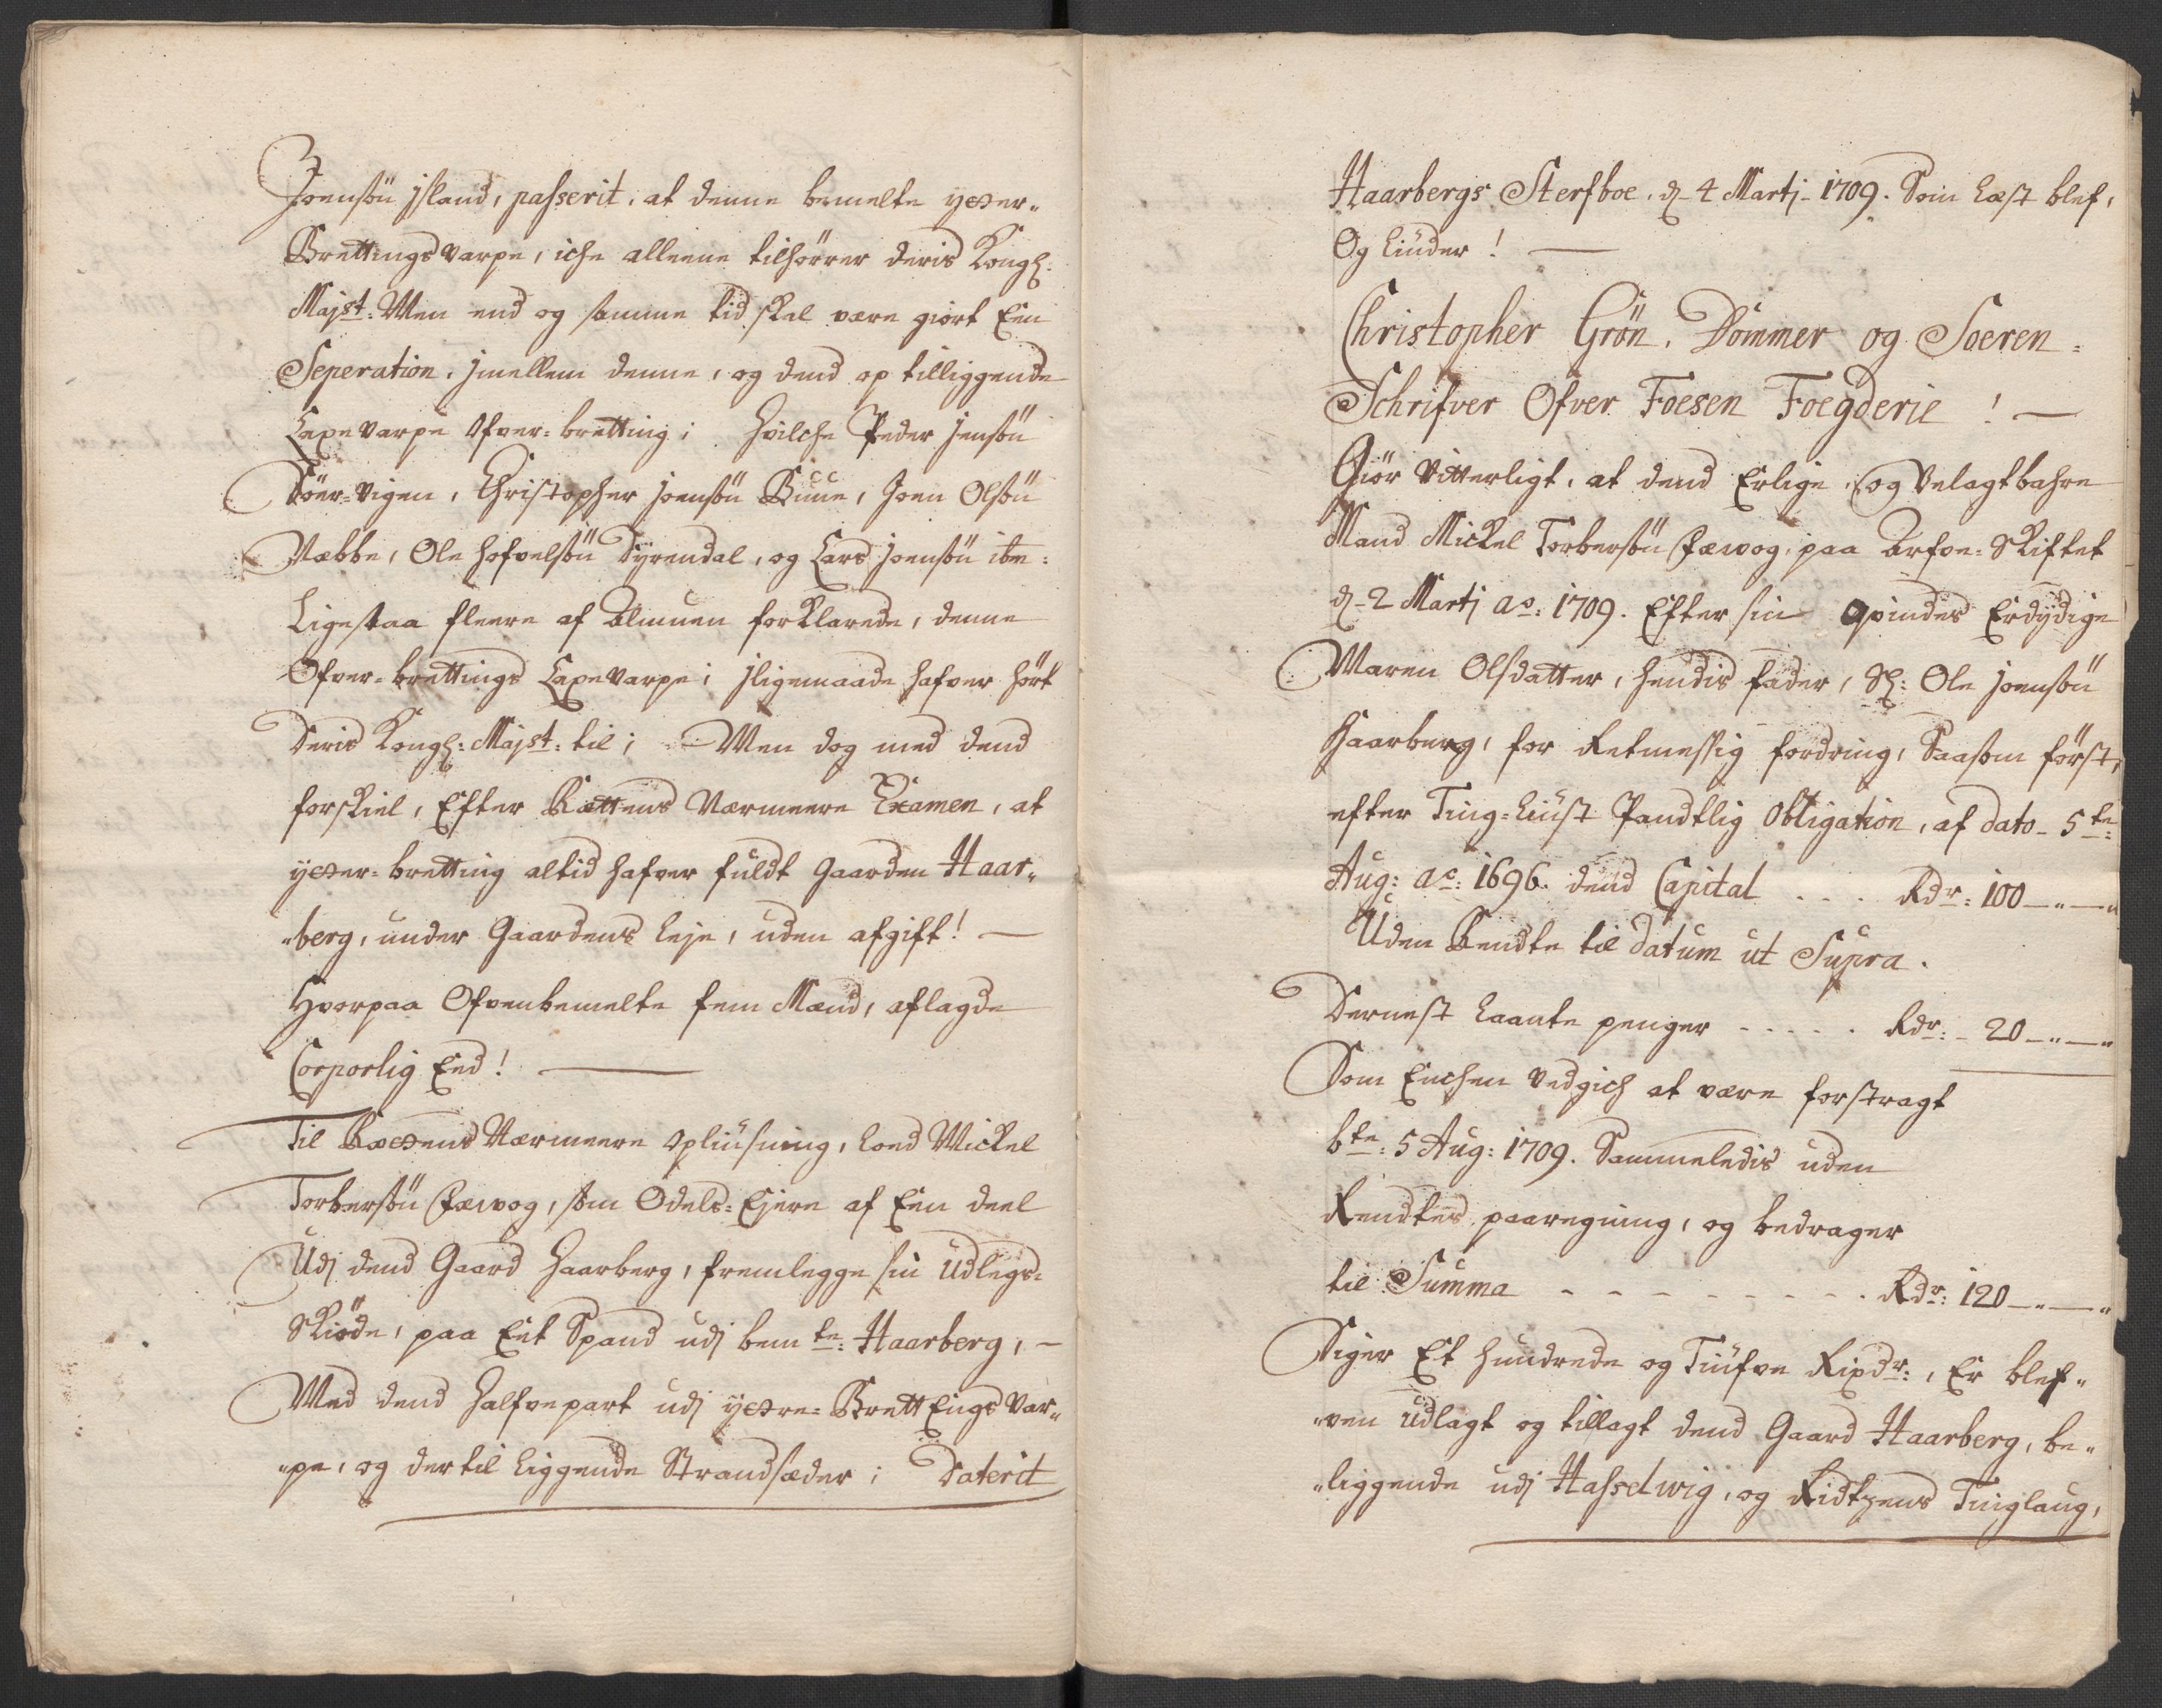 Joensøn jsland, passerit, at denne bemelte ytter„
Brettingsvarpe, iche alleene tilhörrer deris Kongl:
Majst: Men end og samme tid skal være giort Een
Seperation, jmellem denne, og dend op tilliggende
Laxevarpe Ofver-bretting; Hvilche Peder Jensön
Söer-Vigen, Christopher Joensön Buue, Joen Olsön
Næbbe, Ole Hofvelsön Dyrendal, og Lars Joensön ibm:
Ligesaa fleere af Almuen forklarede, denne
Ofver-brettings Laxevarpe; jligemaade hafver hört
Deris Kongl: Majst: til; Men dog med dend
forskiel, Efter Rættens Nærmeere Examen, at
ytter-bretting altid hafver fuldt Gaarden Haar„
„berg, under Gaardens leje, uden afgift! —
Hvorpaa Ofvenbemelte fem Mænd, aflagde
Corporlig Eed! —
Til Rættens Nærmeere Opliusning, loed Mickel
Torbersön Fævog, som Odels-Ejere af Een deel
Udj dend Gaard Haarberg, fremlegge sin Udlegs-
Skiöde, paa Eet Spand udj bemte: Haarberg, —
Med dend Halfvepart udj yttre-Brettengs Var„
„pe, og dertil liggende Strandsæder; Daterit
Haarbergs Sterfboe, d. 4 Martj 1709. Som læst blef,
Og liuder! —
Christopher Grön, Dommer og Soeren-
Schrifver Ofver Foesen Foegderie! —
Giör Vitterligt, at dend Erlige og Velagtbahre
Mand Mickel Torbersön Fævog, paa Arfve-Skiftet
d. 2 Martj ao: 1709. Efter sin qvindes Erdydige
Maren Olsdatter, hendis fader, Sl: Ole Joensön
Haarberg, for Retmessig fordring, Saasom först,
efter Ting-liust Pandtlig Obligation, af dato 5te:
Aug: ao: 1696. dend Capital . . . Rdr: 100 —„—„
Uden Rendte til datum ut Supra.
Dernest laante penger . . . . . Rdr: 20 —„—„
Som Enchen vedgich at være forstragt
bte: 5 Aug: 1709. Sammeledis uden
Rendtes paaregning, og bedrager
til Summa - - - - - - - - Rdr: 120 —„—„
Siger Et Hundrede og Tiufve Rixdr:, Er blef„
„ven Udlagt og tillagt dend Gaard Haarberg, be„
„liggende udj Hasselwig, og Ridtzens Tinglaug,